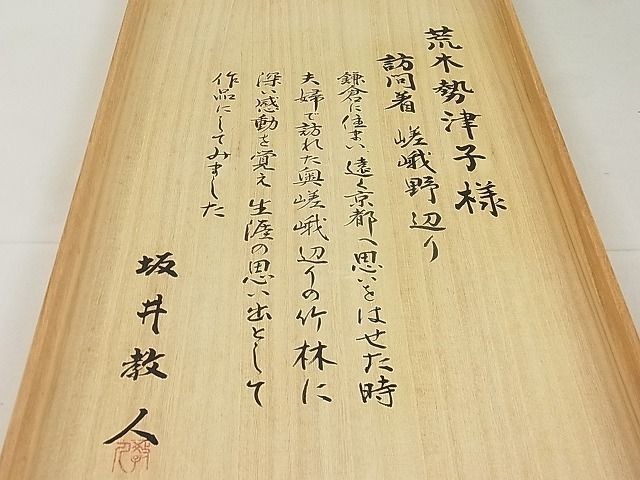 荒木勢津子様
訪問着 嵯峨野辺り
鎌倉に住まい遠く京都へ思いをはせた時
夫婦で訪れた奥嵯峨辺りの竹林に
深い感動を覚え生涯の思い出として
作品にしてみました
坂井教人